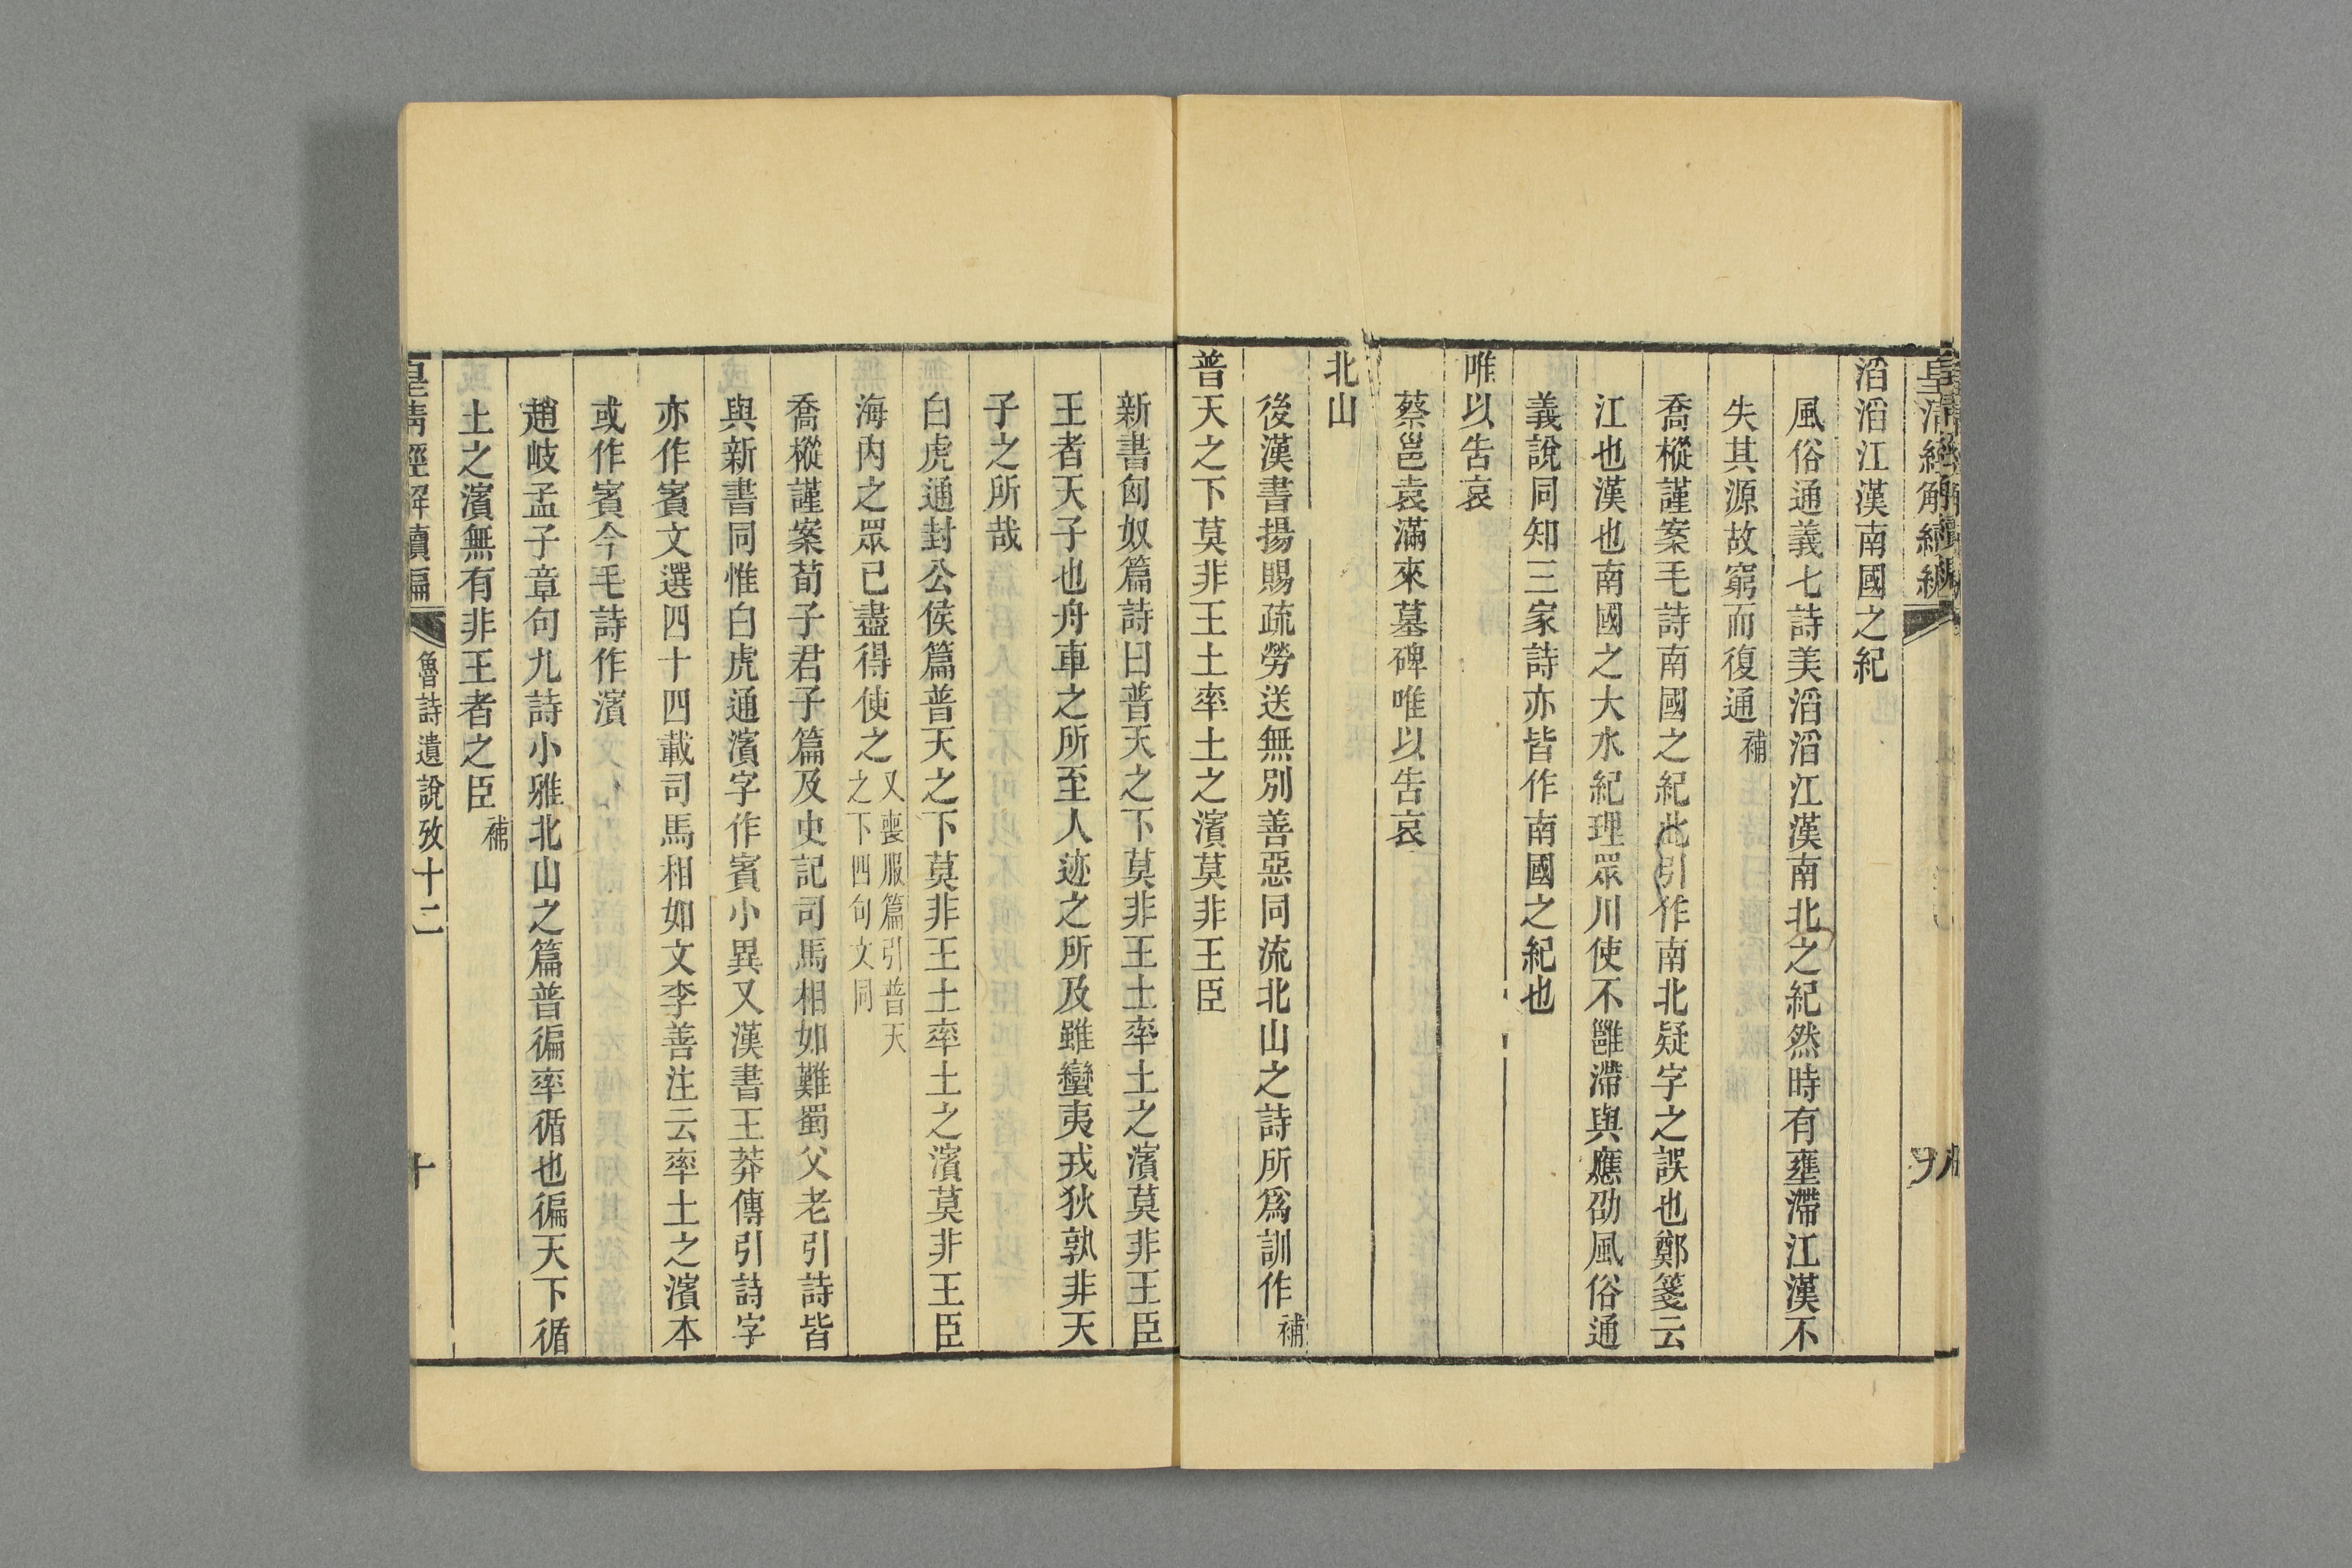 皇清經解續編
滔滔江漢南國之紀
風俗通義七詩美滔滔江漢南北之紀然時有壅滯江漢不
失其源故窮而復通補
喬樅謹案毛詩南國之紀此引作南北疑字之誤也鄭箋云
江也漢也南國之大水紀理眾川使不雝滯與應劭風俗通
義說同知三家詩亦皆作南國之紀也
唯以告哀
蔡邕袁滿來墓碑唯以告哀
北山
後漢書揚賜疏勞送無別善惡同流北山之詩所爲訓作補
普天之下莫非王土率土之濱莫非王臣
新書匈奴篇詩曰普天之下莫非王土率土之濱莫非王臣
王者天子也舟車之所至人迹之所及雖蠻夷戎狄孰非天
子之所哉
白虎通封公侯篇普天之下莫非王土率土之濱莫非王臣
海內之眾已盡得使之又喪服篇引普天之下四句文同
喬樅謹案荀子君子篇及史記司馬相如難蜀父老引詩皆
與新書同惟白虎通濱字作賓小異又漢書王莽傳引詩字
亦作賓文選四十四載司馬相如文李善注云率土之濱本
或作賓今毛詩作濱
趙岐孟子章句九詩小雅北山之篇普徧率循也徧天下循
土之濱無有非王者之臣補
皇清經解續編
魯詩遺說攷十二
十